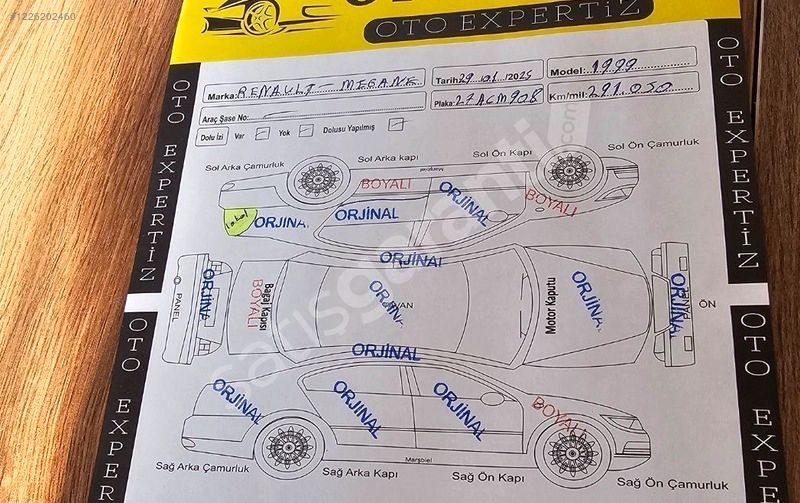 #1226202460
OTO EXPERTİZ
Marka: RENAULT – MEGANE
Tarih: 29/01/2025
Model: 1999
Araç Şase No:
Plaka: 27ACM908
Km/mil: 291.050
Dolu İzi Var Yok Dolusu Yapılmış
Sol Arka Çamurluk Sol Arka kapı Sol Ön Kapı Sol Ön Çamurluk
Marşbiel
BOYALI
ORJİNAL
BOYALI
lokal
ORJİNAL
ORJİNAL
ORJİNAL
PANEL
ORJİNAL
Bagaj Kapısı
BOYALI
TAVAN
ORJİNAL
Motor Kaputu
ORJİNAL
PANEL
ORJİNAL
ÖN
ORJİNAL
ORJİNAL
ORJİNAL
ORJİNAL
BOYALI
Marşbiel
Sağ Arka Çamurluk Sağ Arka Kapı Sağ Ön Kapı Sağ Ön Çamurluk
OTO EXPERTİZ
OTO EXPERTİZ
OTO EXPERTİZ
OTO EXPERTİZ
satışgaranti.com